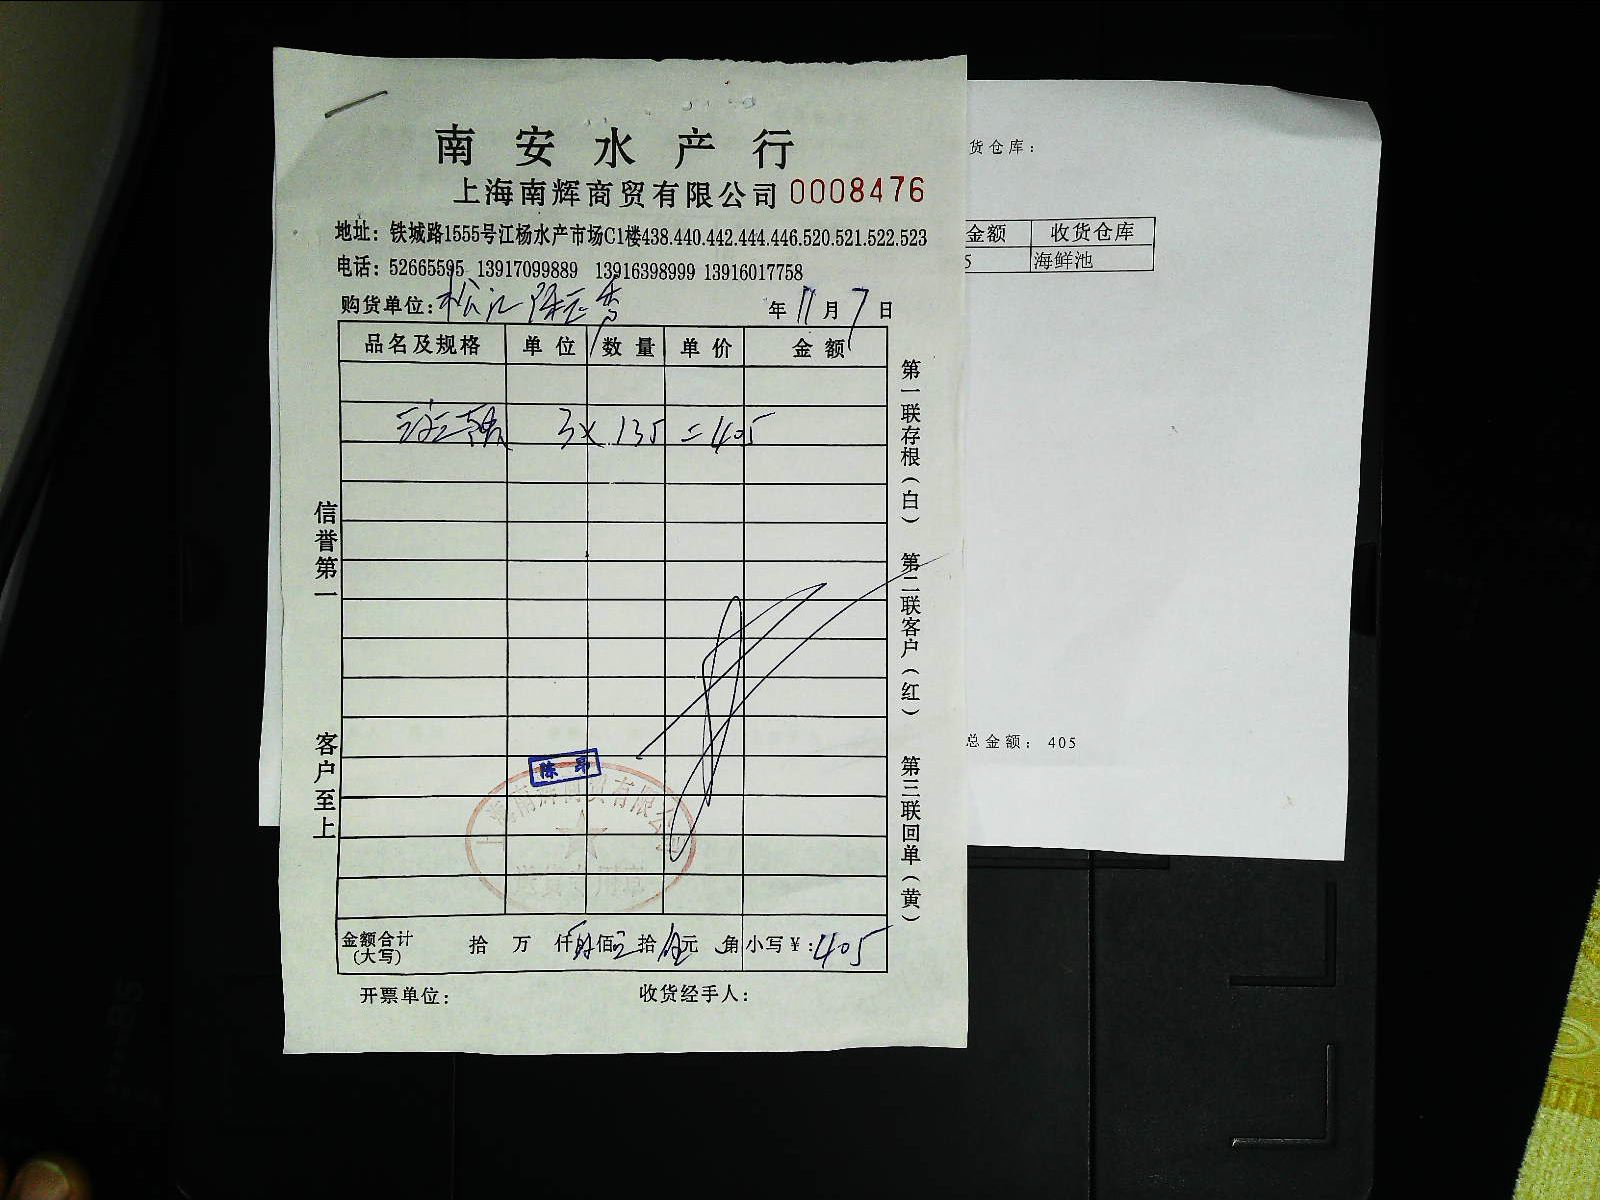 南安水产行
上海南辉商贸有限公司 0008476
地址：铁城路1555号江杨水产市场C1楼438.440.442.444.446.520.521.522.523
电话：52665595 13917099889 13916398999 13916017758
购货单位：松江 年 11 月 7 日
品名及规格 单位 数量 单价 金额
3 × 135 = 405
信誉第一
客户至上
第一联存根（白）
第二联客户（红）
第三联回单（黄）
陈昂
上海南辉商贸有限公司
送货专用章
金额合计（大写） 拾 万 仟 肆 佰 拾 伍 元 角 小写￥：405
开票单位： 收货经手人：
货仓库：
金额 收货仓库
5 海鲜池
总金额：405